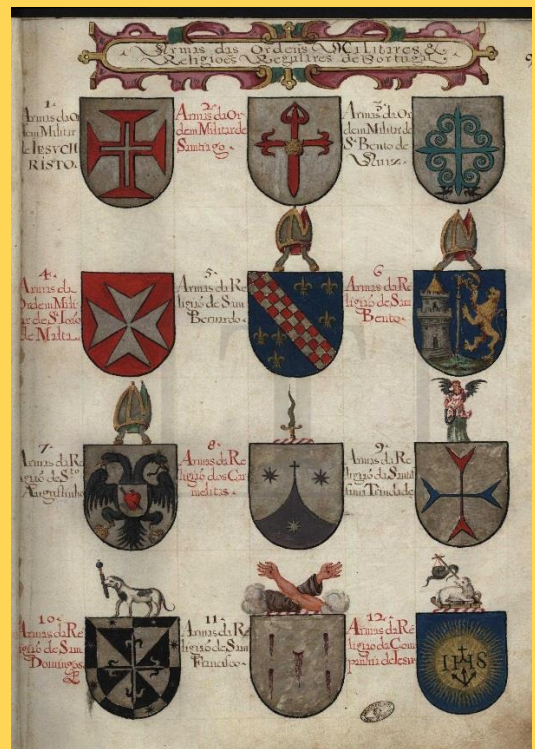 Armas das Ordens Militares &
Religiões Regulares de Portugal
1.
Armas da Or
dem Militar
de IESVCH
RISTO.
2.
Armas da Or
dem Militar de
Santiago.
3.
Armas da Or
dem Militar de
S. Bento de
Auiz.
4.
Armas da
Ordem Mili
tar de S. Ioaõ
de Malta.
5.
Armas da Re
ligiaõ de Sam
Bernardo.
6
Armas da Re
ligiaõ de Sam
Bento.
7.
Armas da Re
ligiaõ de Sto
Augustinho
8
Armas da Re
ligiaõ dos Car
melitas.
9.
Armas da Re
ligiaõ da Santis
sima Trindade
10.
Armas da Re
ligiaõ de Sam
Domingos.
11.
Armas da Re
ligiaõ de Sam
Francisco.
12.
Armas da Re
ligiaõ da Com
panhia de Iesu
IHS